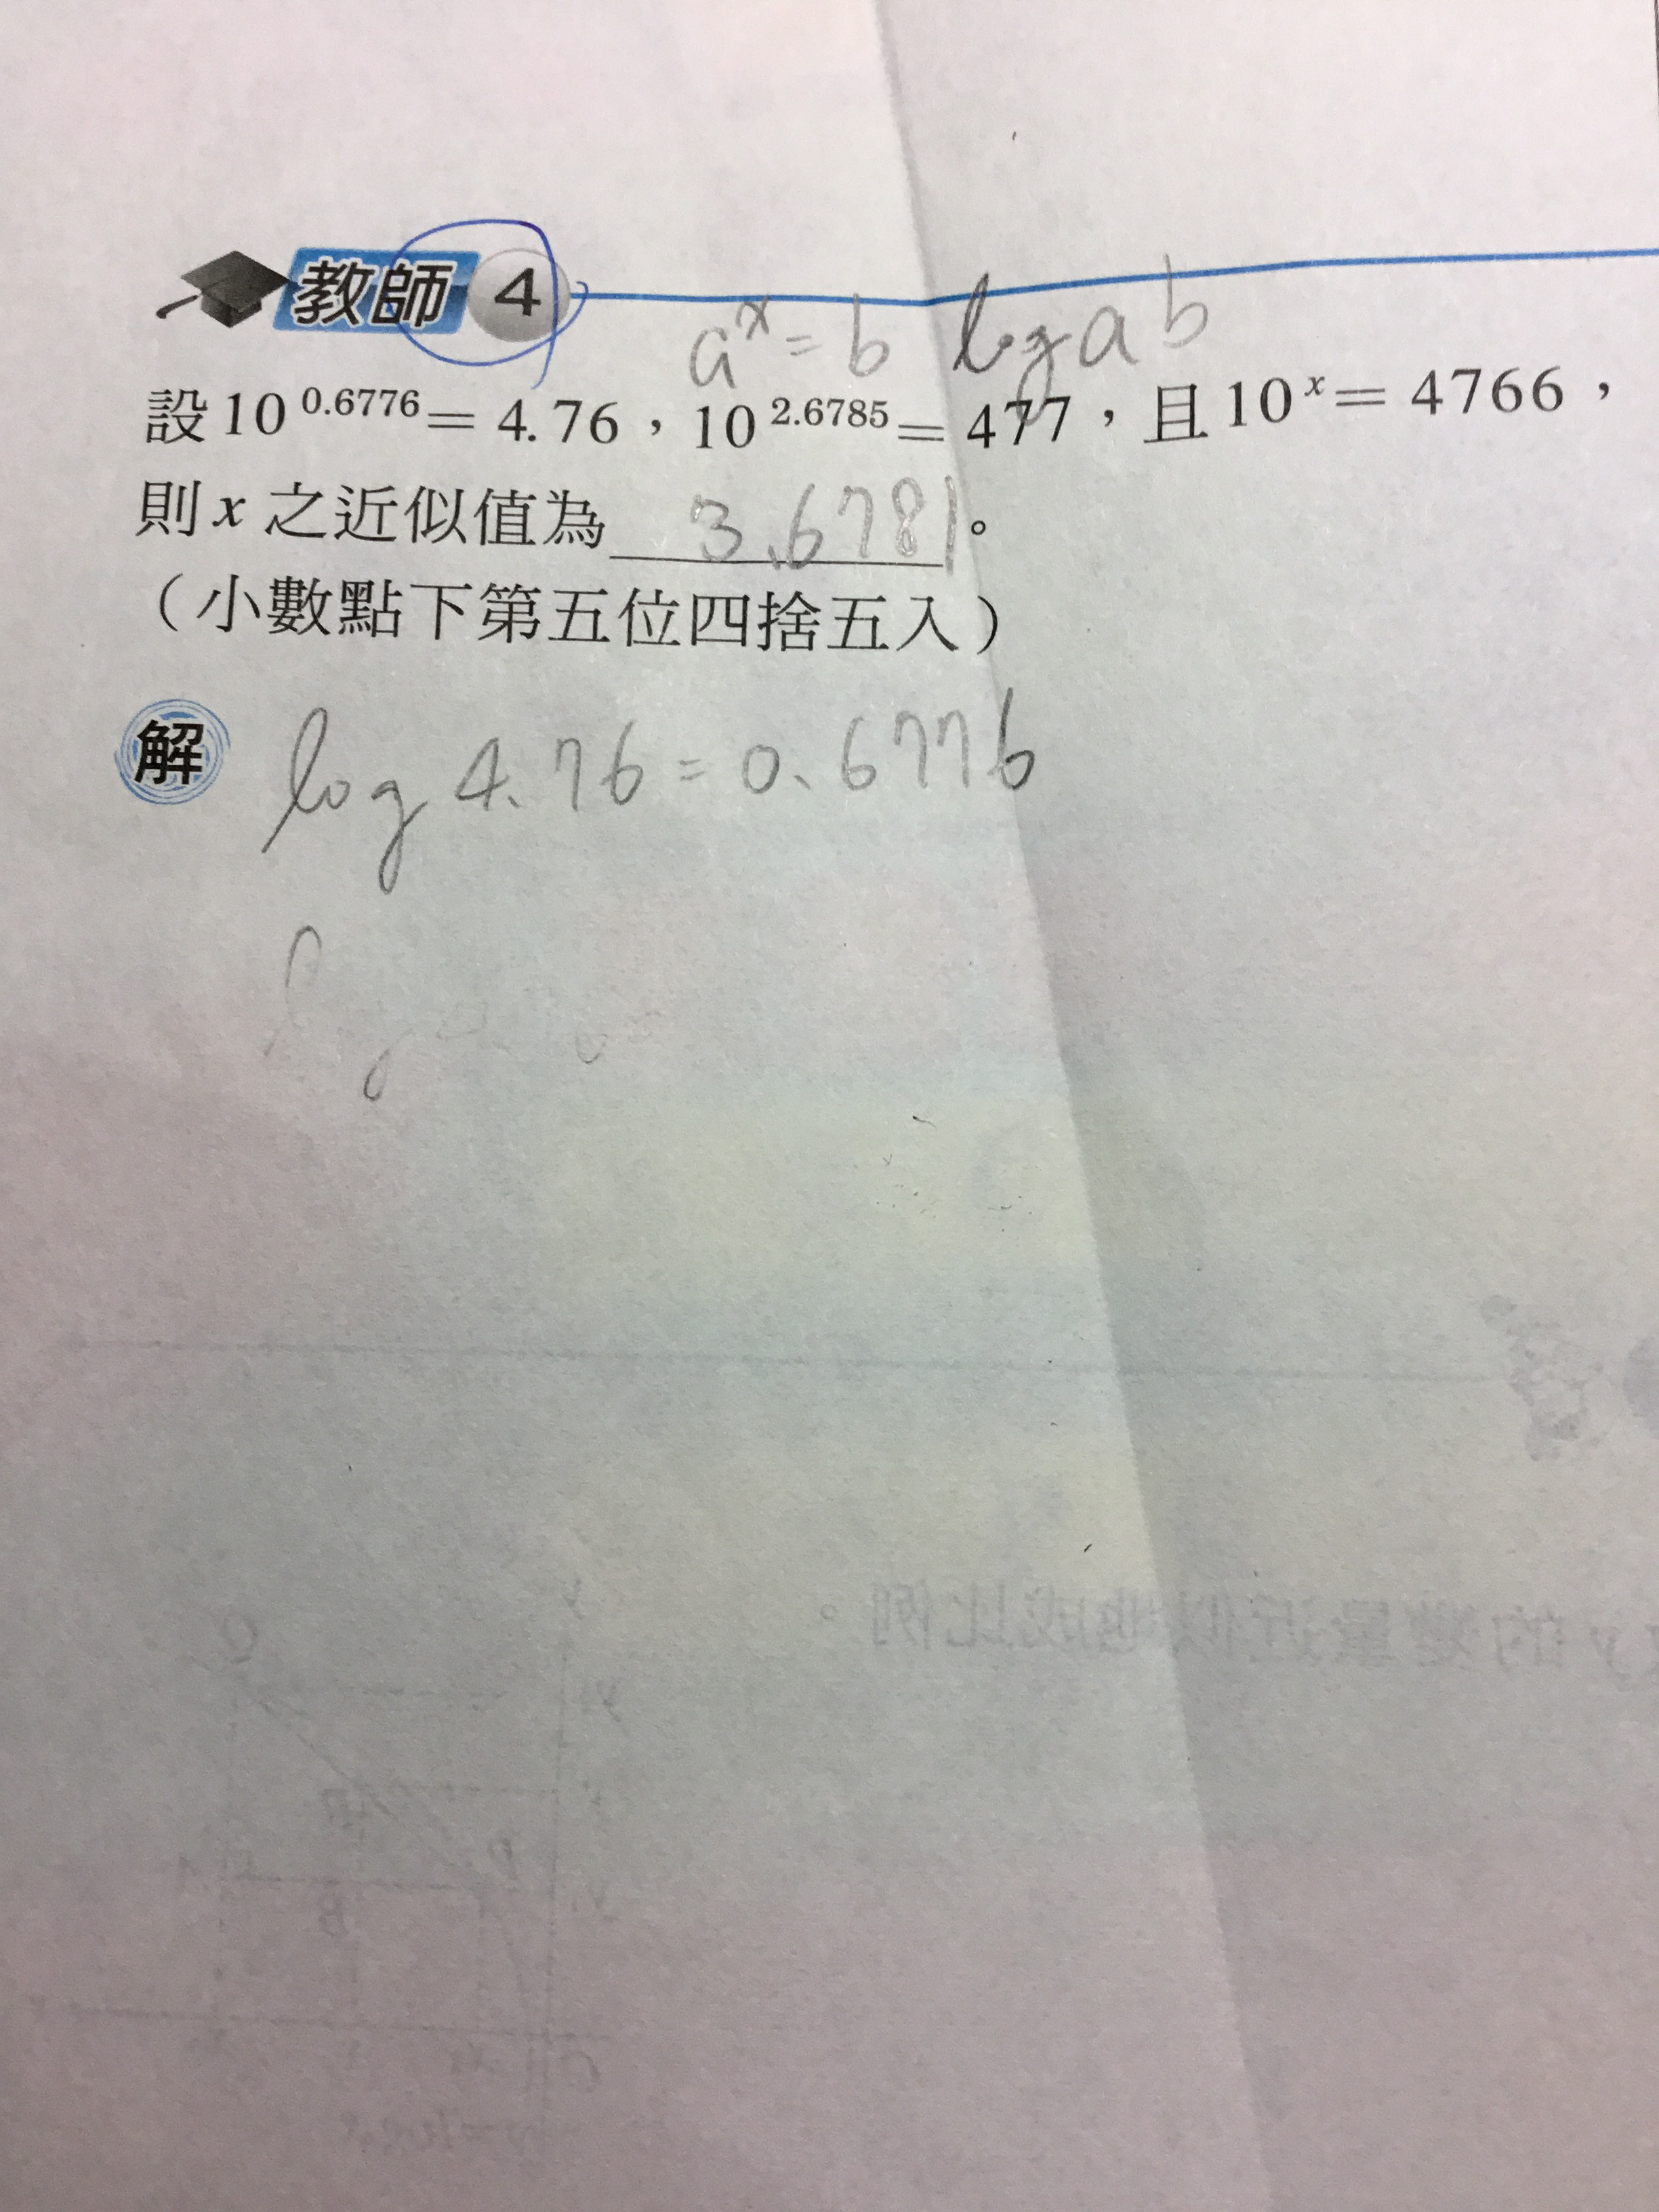 教師 4
aˣ = b log a b
設 10^0.6776 = 4.76，10^2.6785 = 477，且 10^x = 4766，
則 x 之近似值為 3.6781。
（小數點下第五位四捨五入）
解 log 4.76 = 0.6776
log
y 的變量近似地成比例。